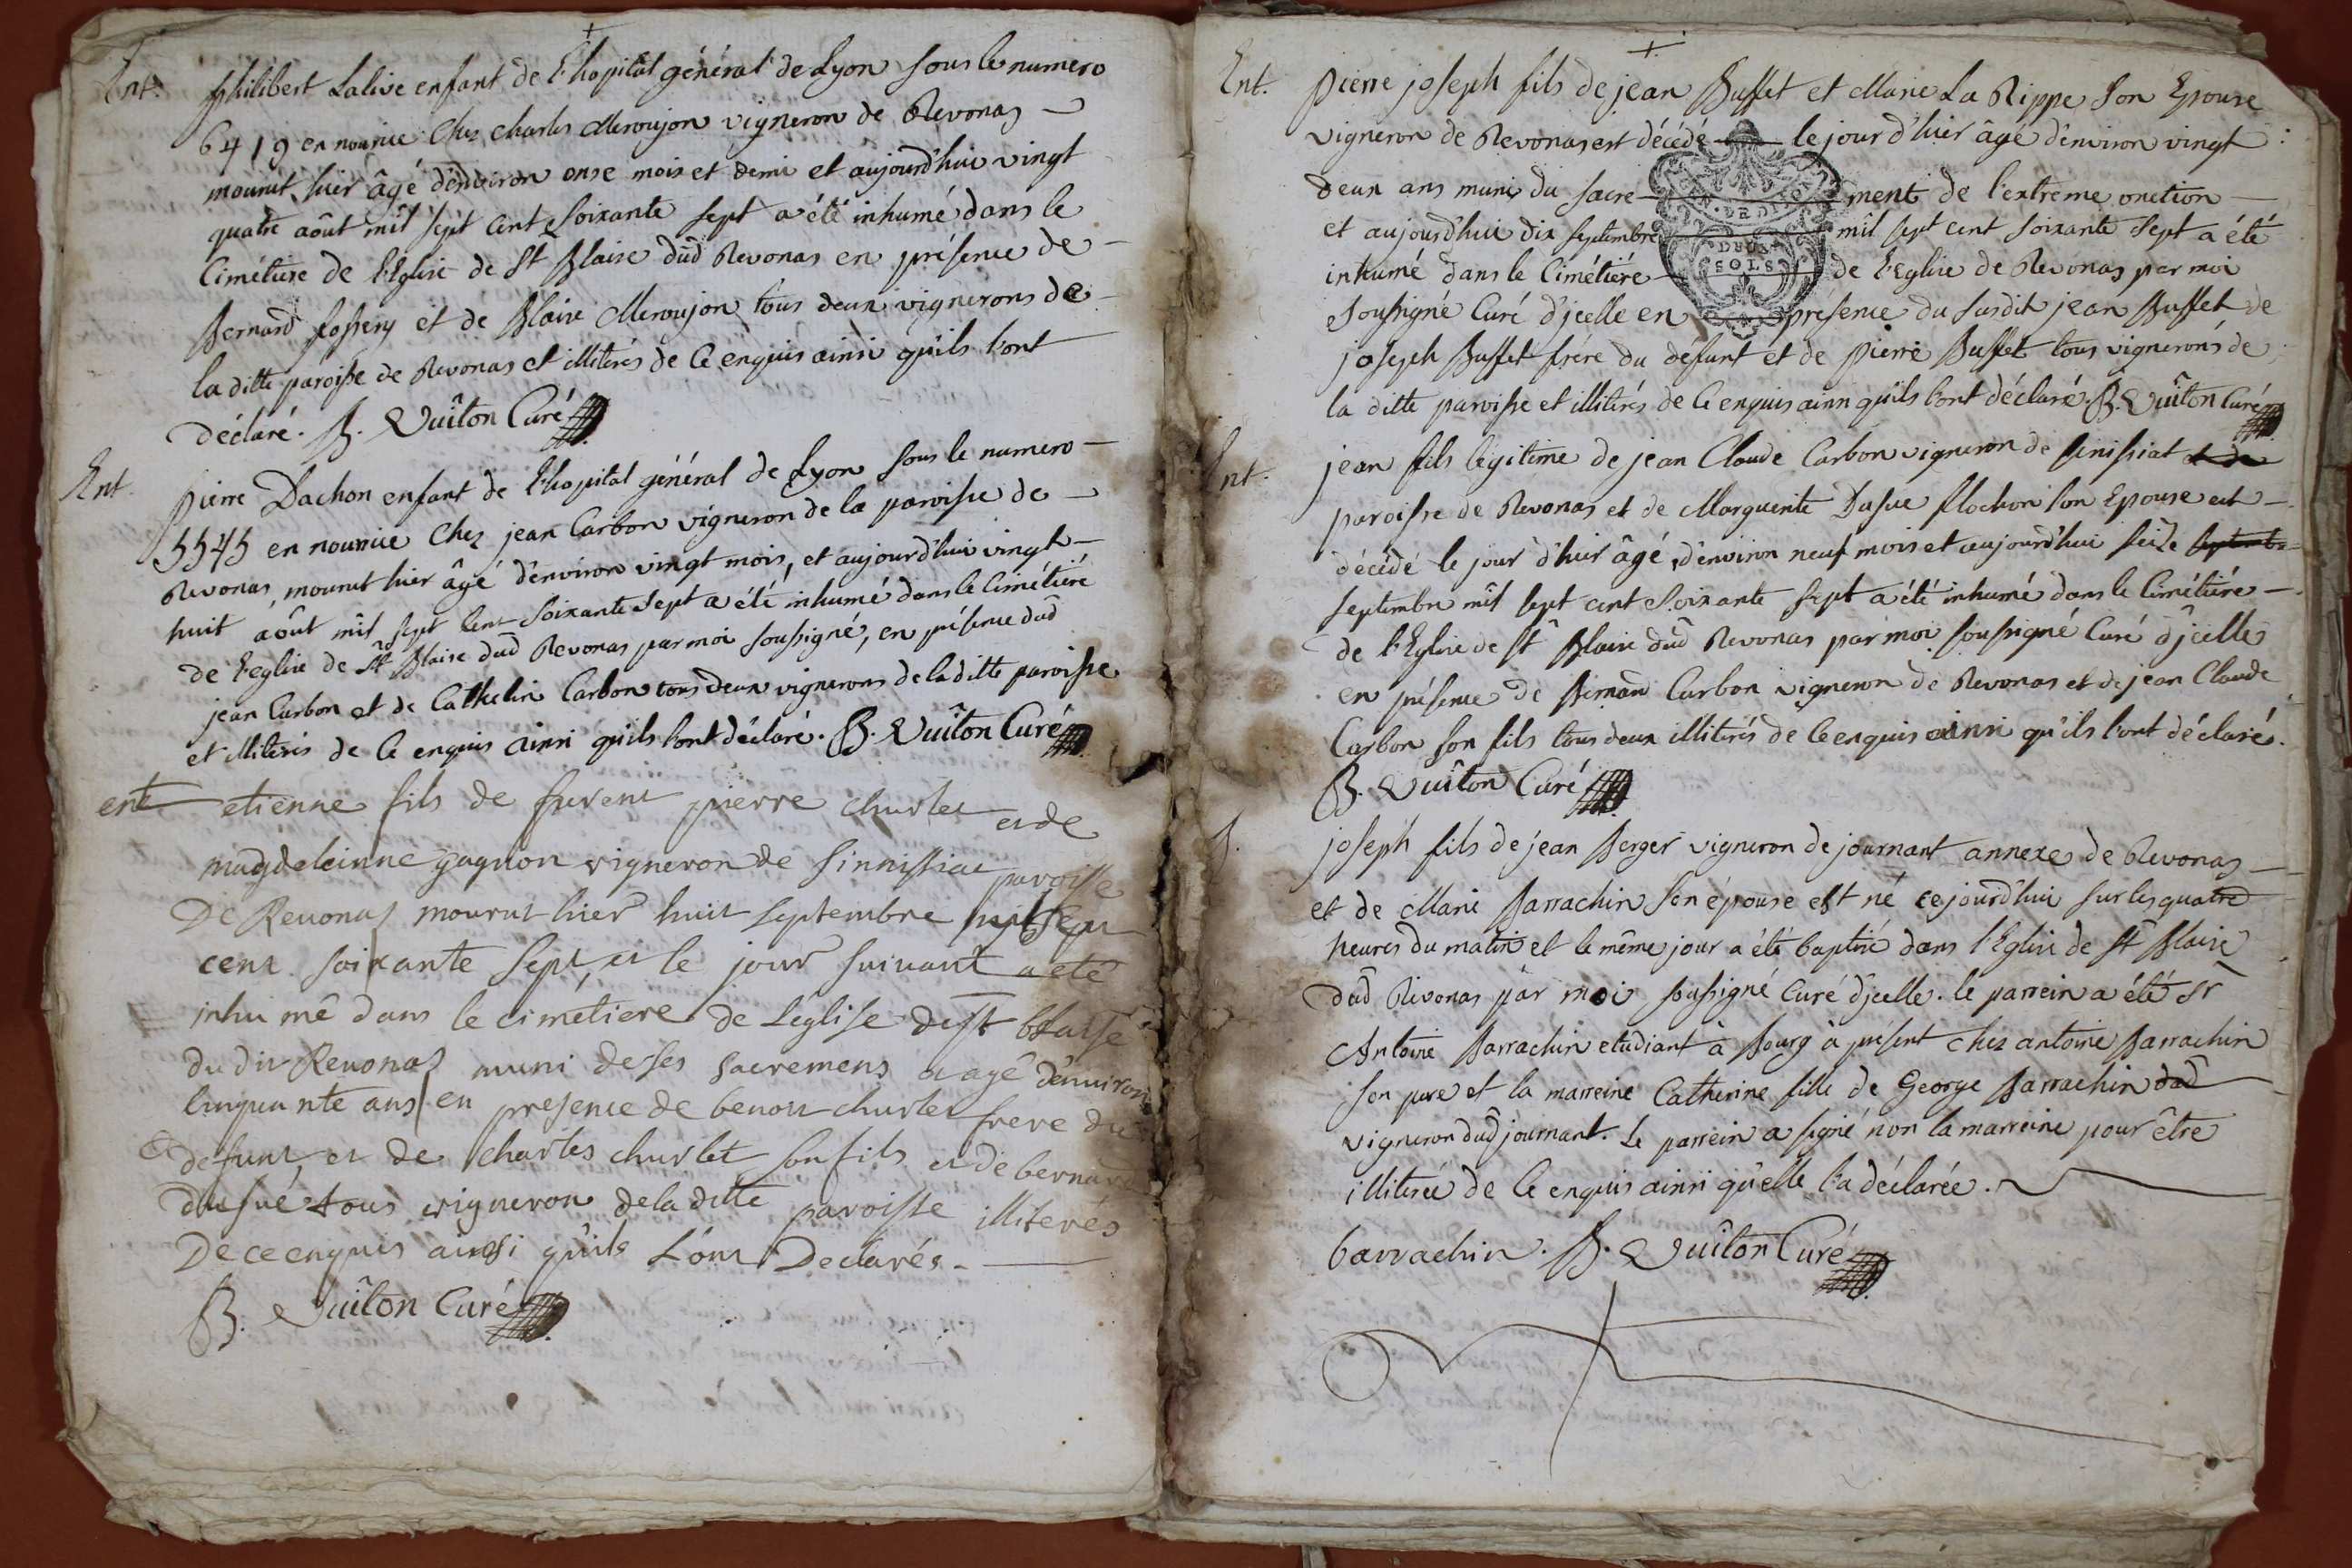 Ent. philibert Lalive enfant de l'hopital général de Lyon sous le numero
6419 en nourice chez charles Meroujon vigneron de Revonas
mourut hier âgé d'environ onze mois et demi et aujourd'hui vingt
quatre août mil sept cent soixante sept a été inhumé dans le
Cimétiere de l'Eglise de St Blaise dud Revonas en présence de
Bernard et de Blaise Meroujon tous deux vignerons de
la ditte paroisse de Revonas et illiterés de ce enquis ainsi qu'ils l'ont
déclaré. B. Vuiton Curé
Ent. pierre Dachon enfant de l'hopital général de Lyon sous le numero
5545 en nourice chez jean Carbon vigneron de la paroisse de
Revonas, mourut hier âgé d'environ vingt mois, et aujourd'hui vingt
huit août mil sept cent soixante sept a été inhumé dans le Cimétiére
de l'eglise de St Blaise dud Revonas par moi soussigné, en présence dud
jean Carbon et de Cathelin Carbon tous deux vignerons de la ditte paroisse
et illiterés de ce enquis ainsi qu'ils l'ont déclaré. B. Vuiton Curé
ent etienne fils de furent pierre churlet et de
magdeleinne gagnon vigneron de sinnissiat paroisse
De Revonas mourut hier huit septembre mil sept
cent soixante sept, et le jour suivant a été
inhumé dans le cimetiere de L'église de st blaise
du dit Revonas muni de ses sacremens et agé d'environ
cinquante ans en presence de benoit churlet frere du
defunt, et de charles churlet son fils et de bernard
dufué tous vigneron de la ditte paroisse illiterés
De ce enquis ainsi qu'ils L'ont Declarés.
B. Vuiton Curé
Ent. pierre joseph fils de jean Buffet et Marie La Rippe son Epouse
vigneron de Revonas est décédé le jour d'hier âgé d'environ vingt
deux ans muni du sacrement de l'extreme onction
et aujourd'hui dix septembre mil sept cent soixante sept a été
inhumé dans le Cimétiére de l'Eglise de Revonas par moi
soussigné Curé d'jcelle en présence du susdit jean Buffet de
joseph Buffet frére du défunt et de pierre Buffet tous vignerons de
la ditte paroisse et illiterés de ce enquis ainsi qu'ils l'ont déclaré. B. Vuiton Curé
GEN. DE DIJON
DEUX
SOLS
Ent. jean fils légitime de jean Claude Carbon vigneron de sinissiat et de
paroisse de Revonas et de Marguerite Dufue flochon son Epouse est
décédé le jour d'hier âgé d'environ neuf mois et aujourd'hui seize septembre
septembre mil sept cent soixante sept a été inhumé dans le Cimétiére
de l'Eglise de St Blaise dud Revonas par moi soussigné Curé d'jcelle
en présence de Bernard Carbon vigneron de Revonas et de jean Claude
Carbon son fils tous deux illiterés de ce enquis ainsi qu'ils l'ont déclaré.
B. Vuiton Curé
B. joseph fils de jean Berger vigneron de journant annexe de Revonas
et de Marie Barrachin son épouse est né cejourd'hui sur les quatre
heures du matin et le même jour a été baptisé dans l'Eglise de St Blaise
dud Revonas par moi soussigné Curé d'jcelle. le parrein a été Sr
Antoine Barrachin etudiant à Bourg à présent chez antoine Barrachin
son pere et la marreine Catherine fille de George Barrachin dud
vigneron dud journant. Le parrein a signé non la marreine pour être
illiterée de ce enquis ainsi qu'elle l'a déclarée.
barrachin. B. Vuiton Curé